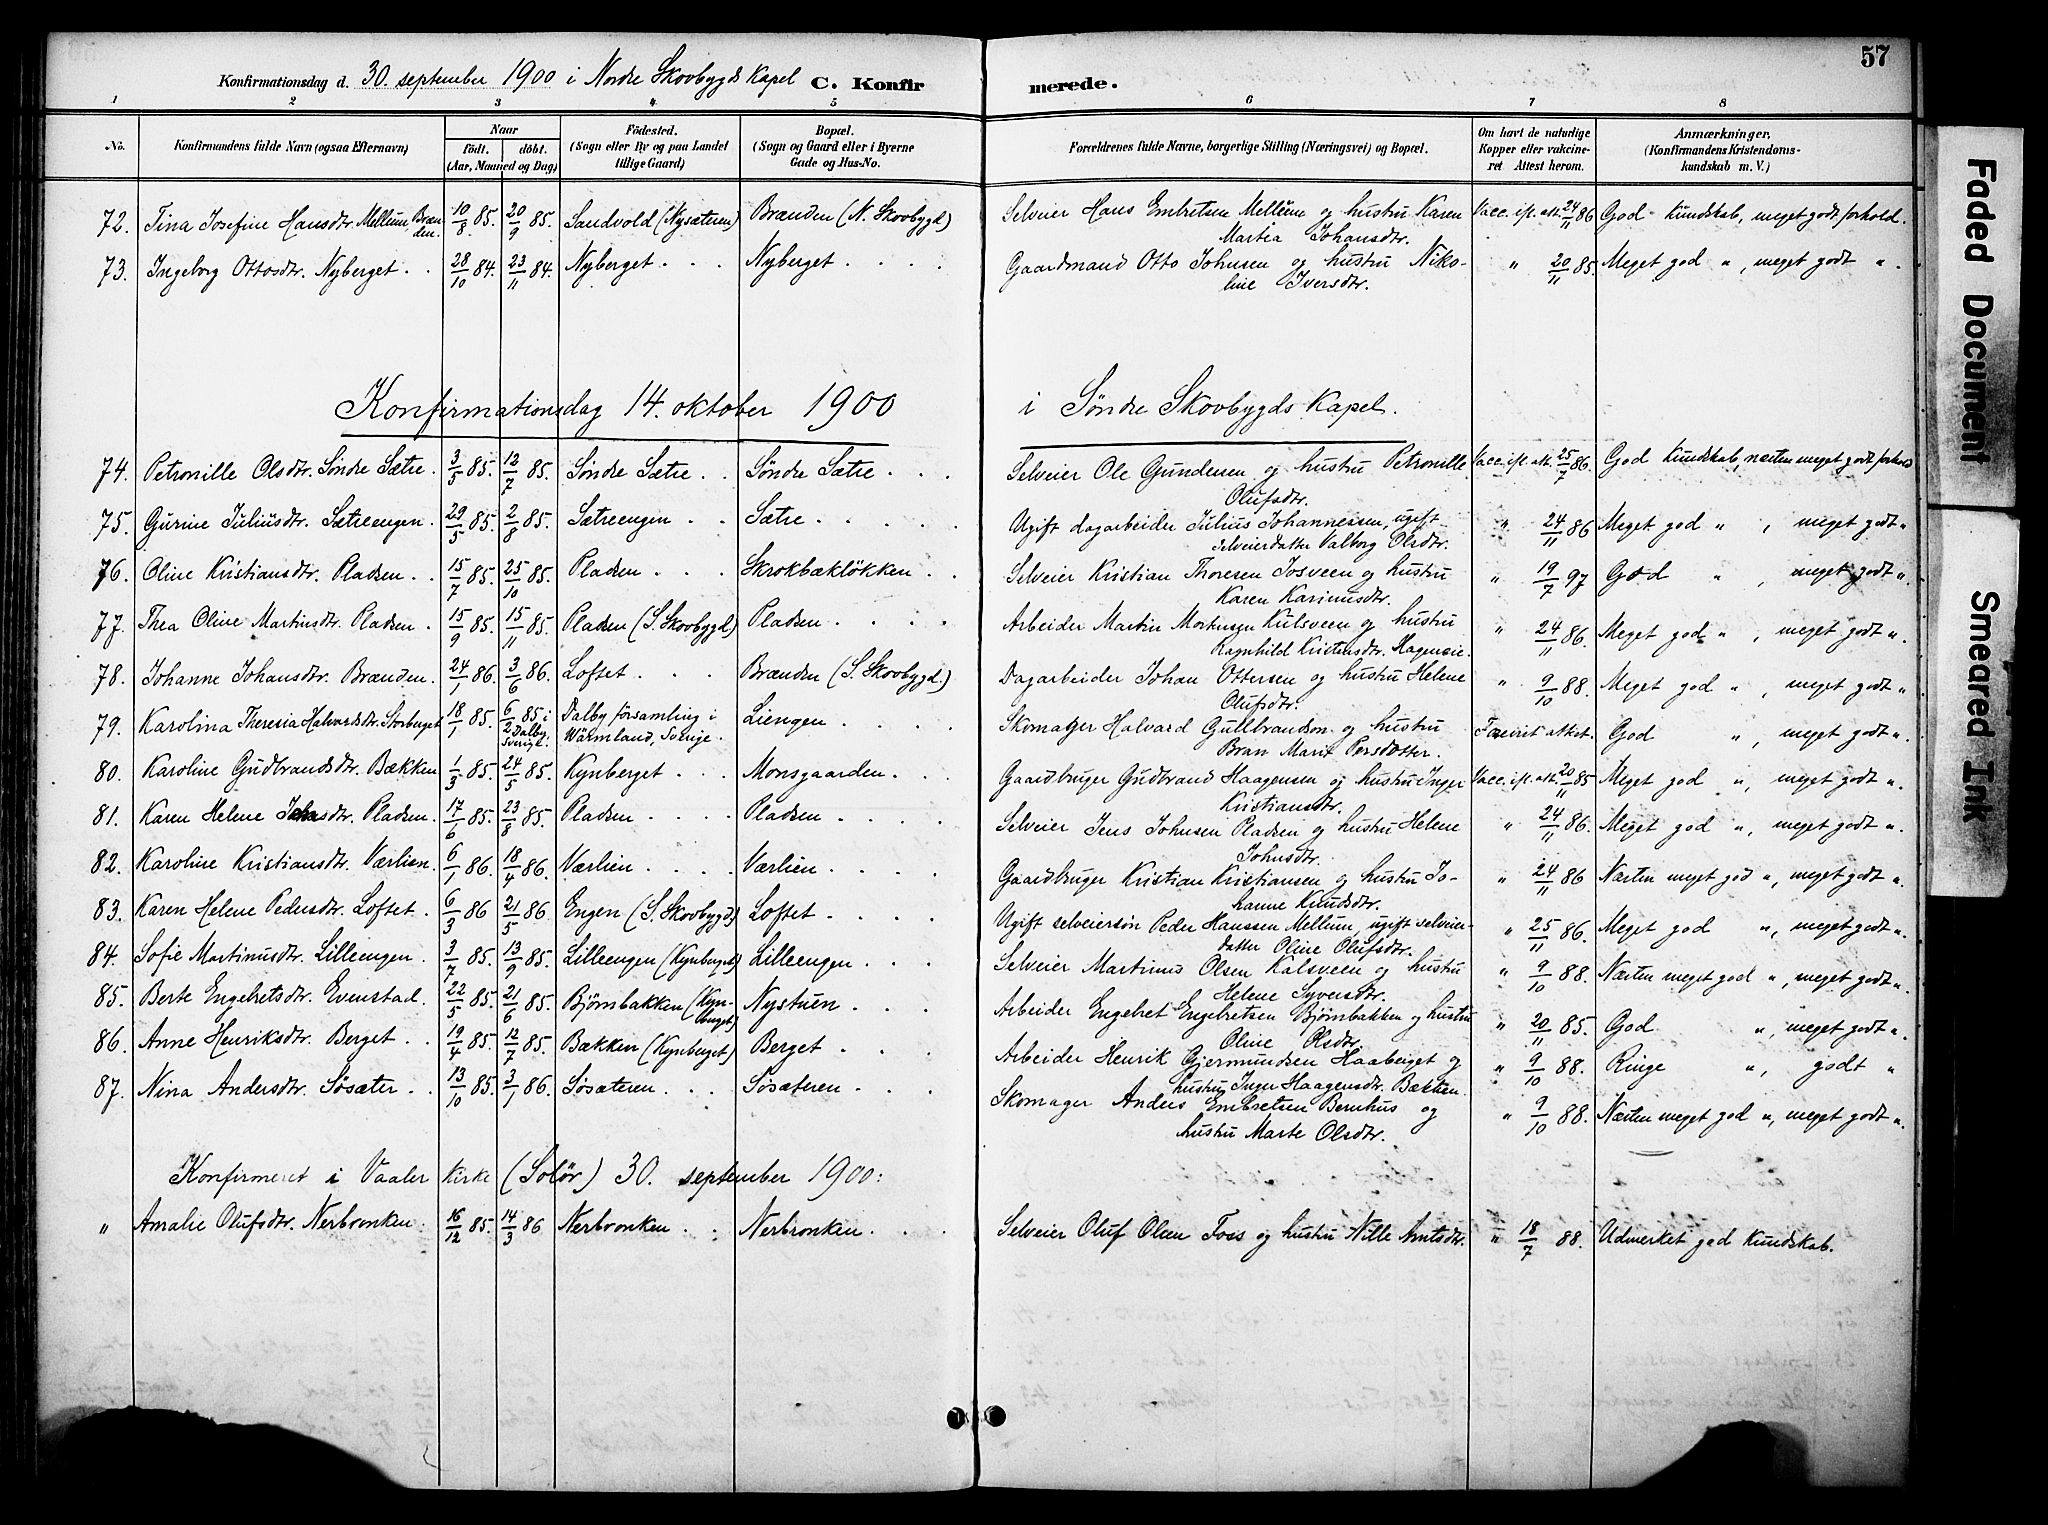 57
Konfirmationsdag d. 30. september 1900 i Nordre Skovbygds Kapel C. Konfirmerede.
1 2 3 4 5 6 7 8
No. Konfirmandens fulde Navn (ogsaa Efternavn) Naar födt. döbt. (Aar, Maaned og Dag) Födested. (Sogn eller By og paa Landet tillige Gaard) Bopæl. (Sogn og Gaard eller i Byerne Gade og Hus-No. Forældrenes fulde Navne, borgerlige Stilling (Næringsvei) og Bopæl. Om havt de naturlige Kopper eller vakcineret Attest herom. Anmærkninger, (Konfirmandens Kristendomskundskab m. V.)
72. Tina Josefine Hansdtr. Mellum, Brænden. 10/8 85. 20/9 85. Sandvold (Nysæteren) Brænden (N. Skovbygd) Selveier Hans Embretsen Mellum og hustru Karen Martea Johansdtr. Vacc. ifl. att. 24/11 86 God kundskab, meget godt forhold.
73. Ingeborg Ottosdtr. Nyberget 28/10 84. 23/11 84. Nyberget Nyberget Gaardmand Otto Johnsen og hustru Nikoline Iversdtr. " 20/11 85. Meget god ", meget godt ".
Konfirmationsdag 14. oktober 1900 i Söndre Skovbygds Kapel.
74. Petronille Olsdtr. Söndre Sætre. 3/5 85. 12/7 85. Söndre Sætre Söndre Sætre Selveier Ole Gundersen og hustru Petronille Olufsdtr. Vacc. ifl. att. 25/7 86. God kundskab, næsten meget godt forhold
75. Gurine Juliusdtr. Sætreengen. 29/5 85. 2/8 85. Sætreengen Sætre Ugift dagarbeider Julius Johannesen, ugift selveierdatter Valborg Olsdtr. " 24/11 86 Meget god ", meget godt "
76. Oline Kristiansdtr. Pladsen 15/7 85. 25/10 85. Pladsen Skrokbækløkken Selveier Kristian Thoresen Josveen og hustru Karen Karinusdtr. " 19/7 97 God ", meget godt ".
77. Thea Oline Martinsdtr. Pladsen 15/9 85. 15/11 85. Pladsen (S. Skovbygd) Pladsen Arbeider Martin Mortensen Kulsveen og hustru Ragnhild Kristensdtr. Hageneie. " 24/11 86. Meget god ", meget godt ".
78. Johanne Johansdtr. Brænden. 24/1 86. 3/6 86. Loftet Brænden (S. Skovbygd.) Dagarbeider Johan Ottersen og hustru Helene Olufsdtr. " 9/10 88. Meget god ", meget godt "
79. Karolina Theresia Halvardsdtr. Storberget 18/1 85. 6/2 85 i Dalby, Sverige. Dalby församling i Wärmland, Sverige. Liengen Skomager Halvard Gullbrandson og hustru Bran Marit Persdotter. Forevist attest. God ", meget godt ".
80. Karoline Gudbrandsdtr. Bækken 1/3 85. 24/5 85. Kynberget Monsgaarden Gaardbruger Gudbrand Haagensen og hustru Inger Kristiansdtr. Vacc. ifl. att. 20/11 85 Meget god ", meget godt ".
81. Karen Helene Jensdtr. Pladsen. 17/6 85. 23/8 85. Pladsen Pladsen Selveier Jens Johnsen Pladsen og hustru Helene Johnsdtr. " 24/11 86. Meget god ", meget godt ".
82. Karoline Kristiansdtr. Værlien. 6/1 86. 18/4 86. Værlien Værlien Gaardbruger Kristian Kristiansen og hustru Johanne Knudsdtr. " 24/11 86 Næsten meget god ", meget godt ".
83. Karen Helene Pedersdtr. Loftet 6/3 86 21/5 86. Engen (S. Skovbygd) Loftet Ugift selveiersön Peder Hanssen Mellum, ugift selveierdatter Oline Olufsdtr. " 25/11 86. Meget god ", meget godt ".
84. Sofie Martinusdtr. Lilleengen. 3/7 85. 13/9 85. Lilleengen (Kynberget) Lilleengen Selveier Martinus Olsen Kalsveen og hustru Helene Syversdtr. " 9/10 88. Næsten meget god ", meget godt ".
85. Berte Engebretsdtr. Evenstad. 22/5 85. 21/6 85. Bjørnbakken (Kynberget) Nystuen Arbeider Engebret Engebretsen Bjørnbakken og hustru Oline Olsdtr. " 20/11 85. God ", meget godt ".
86. Anne Henriksdtr. Berget 19/4 85. 12/7 85. Bækken (Kynberget) Berget Arbeider Henrik Gjermundsen Haaberget og hustru Inger Haagensdtr. Bækken. " 9/10 88. Ringe ", godt "
87. Nina Andersdtr. Søsæter 13/10 85. 3/1 86. Søsæteren Søsæteren Skomager Anders Embretsen Bernhus og hustru Marte Olsdtr. " 9/10 88. Næsten meget god ", meget godt ".
Konfirmeret i Vaaler Kirke (Solör) 30. september 1900:
" Amalie Olufsdtr. Nerbronken 16/12 85. 14/3 86 Nerbronken Nerbronken Selveier Oluf Olsen Foss og hustru Nille Arntsdtr. " 18/7 88. Udmerket god kundskab.
Faded Document
Smeared Ink